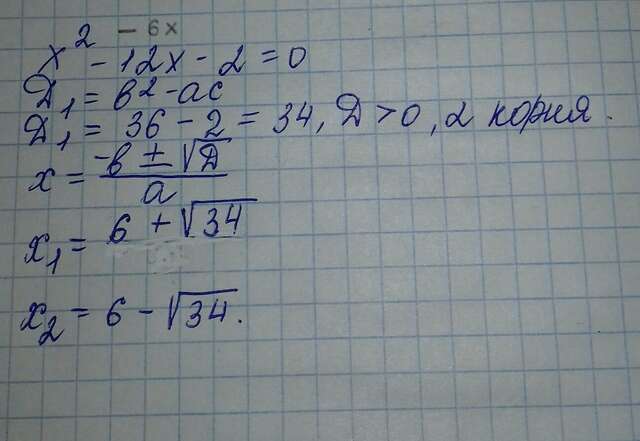 - 6x
x² - 12x - 2 = 0
Д₁ = в² - ас
Д₁ = 36 - 2 = 34, Д > 0, 2 корня.
x = (-в ± √Д) / а
x₁ = 6 + √34
x₂ = 6 - √34.